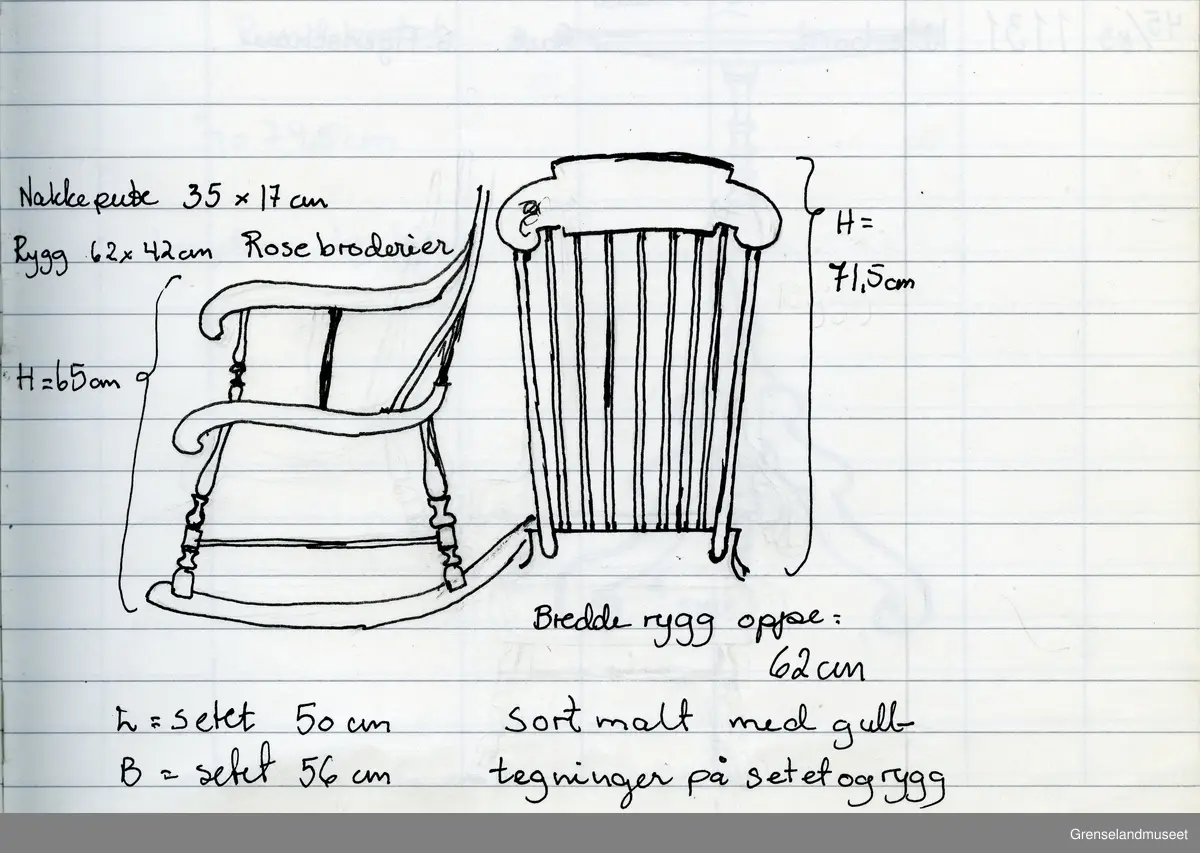 Nakkepute 35 x 17 cm
Rygg 62 x 42 cm Rosebroderier
H = 65 cm
H =
71,5 cm
Bredde rygg oppe:
62 cm
L = setet 50 cm
B = setet 56 cm
Sort malt med gull-
tegninger på setet og rygg
Grenselandmuseet